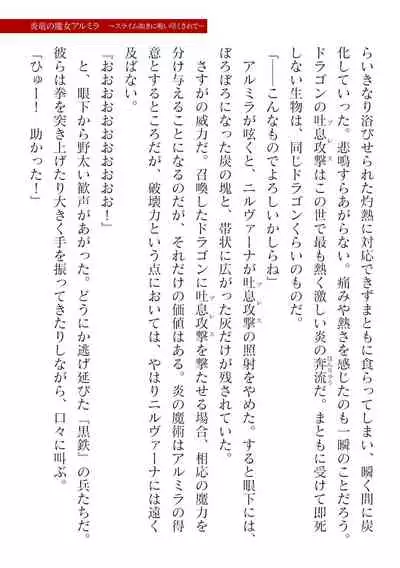 炎竜の魔女アルミラ　～スライム如きに吸い尽くされて～
らいきなり浴びせられた灼熱に対応できずまともに食らってしまい、瞬く間に炭
化していった。悲鳴すらあがらない。痛みや熱さを感じたのも一瞬のことだろう。
ドラゴンの吐息攻撃はこの世で最も熱く激しい炎の奔流だ。まともに受けて即死
しない生物は、同じドラゴンくらいのものだ。
「――こんなものでよろしいかしらね」
アルミラが呟くと、ニルヴァーナが吐息攻撃の照射をやめた。すると眼下には、
ぼろぼろになった炭の塊と、帯状に広がった灰だけが残されていた。
さすがの威力だ。召喚したドラゴンに吐息攻撃を撃たせる場合、相応の魔力を
分け与えることになるのだが、それだけの価値はある。炎の魔術はアルミラの得
意とするところだが、破壊力という点においては、やはりニルヴァーナには遠く
及ばない。
『おおおおおおおおおおおお！』
と、眼下から野太い歓声があがった。どうにか逃げ延びた『黒鉄』の兵たちだ。
彼らは拳を突き上げたり大きく手を振ってきたりしながら、口々に叫ぶ。
「ひゅー！　助かった！」